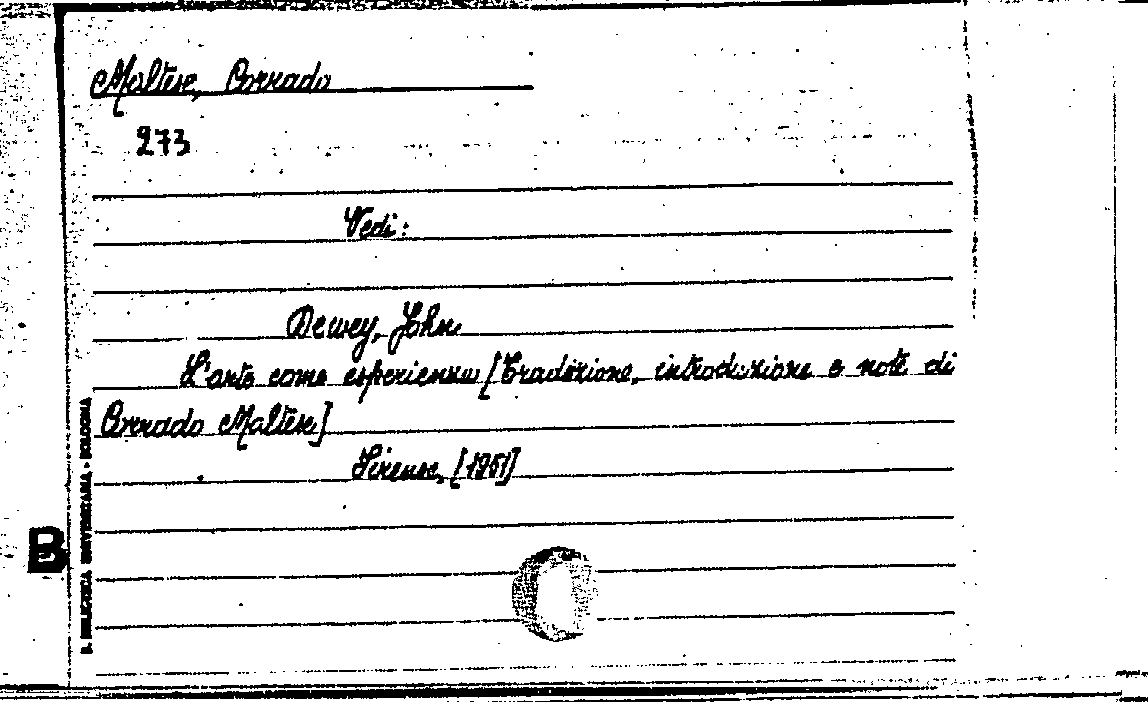 Maltese, Corrado
273
Vedi:
Dewey, John
L'arte come esperienza [Traduzione, introduzione e note di
Corrado Maltese]
Firenze, [1951]
B
B. BIBLIOTECA UNIVERSITARIA - BOLOGNA